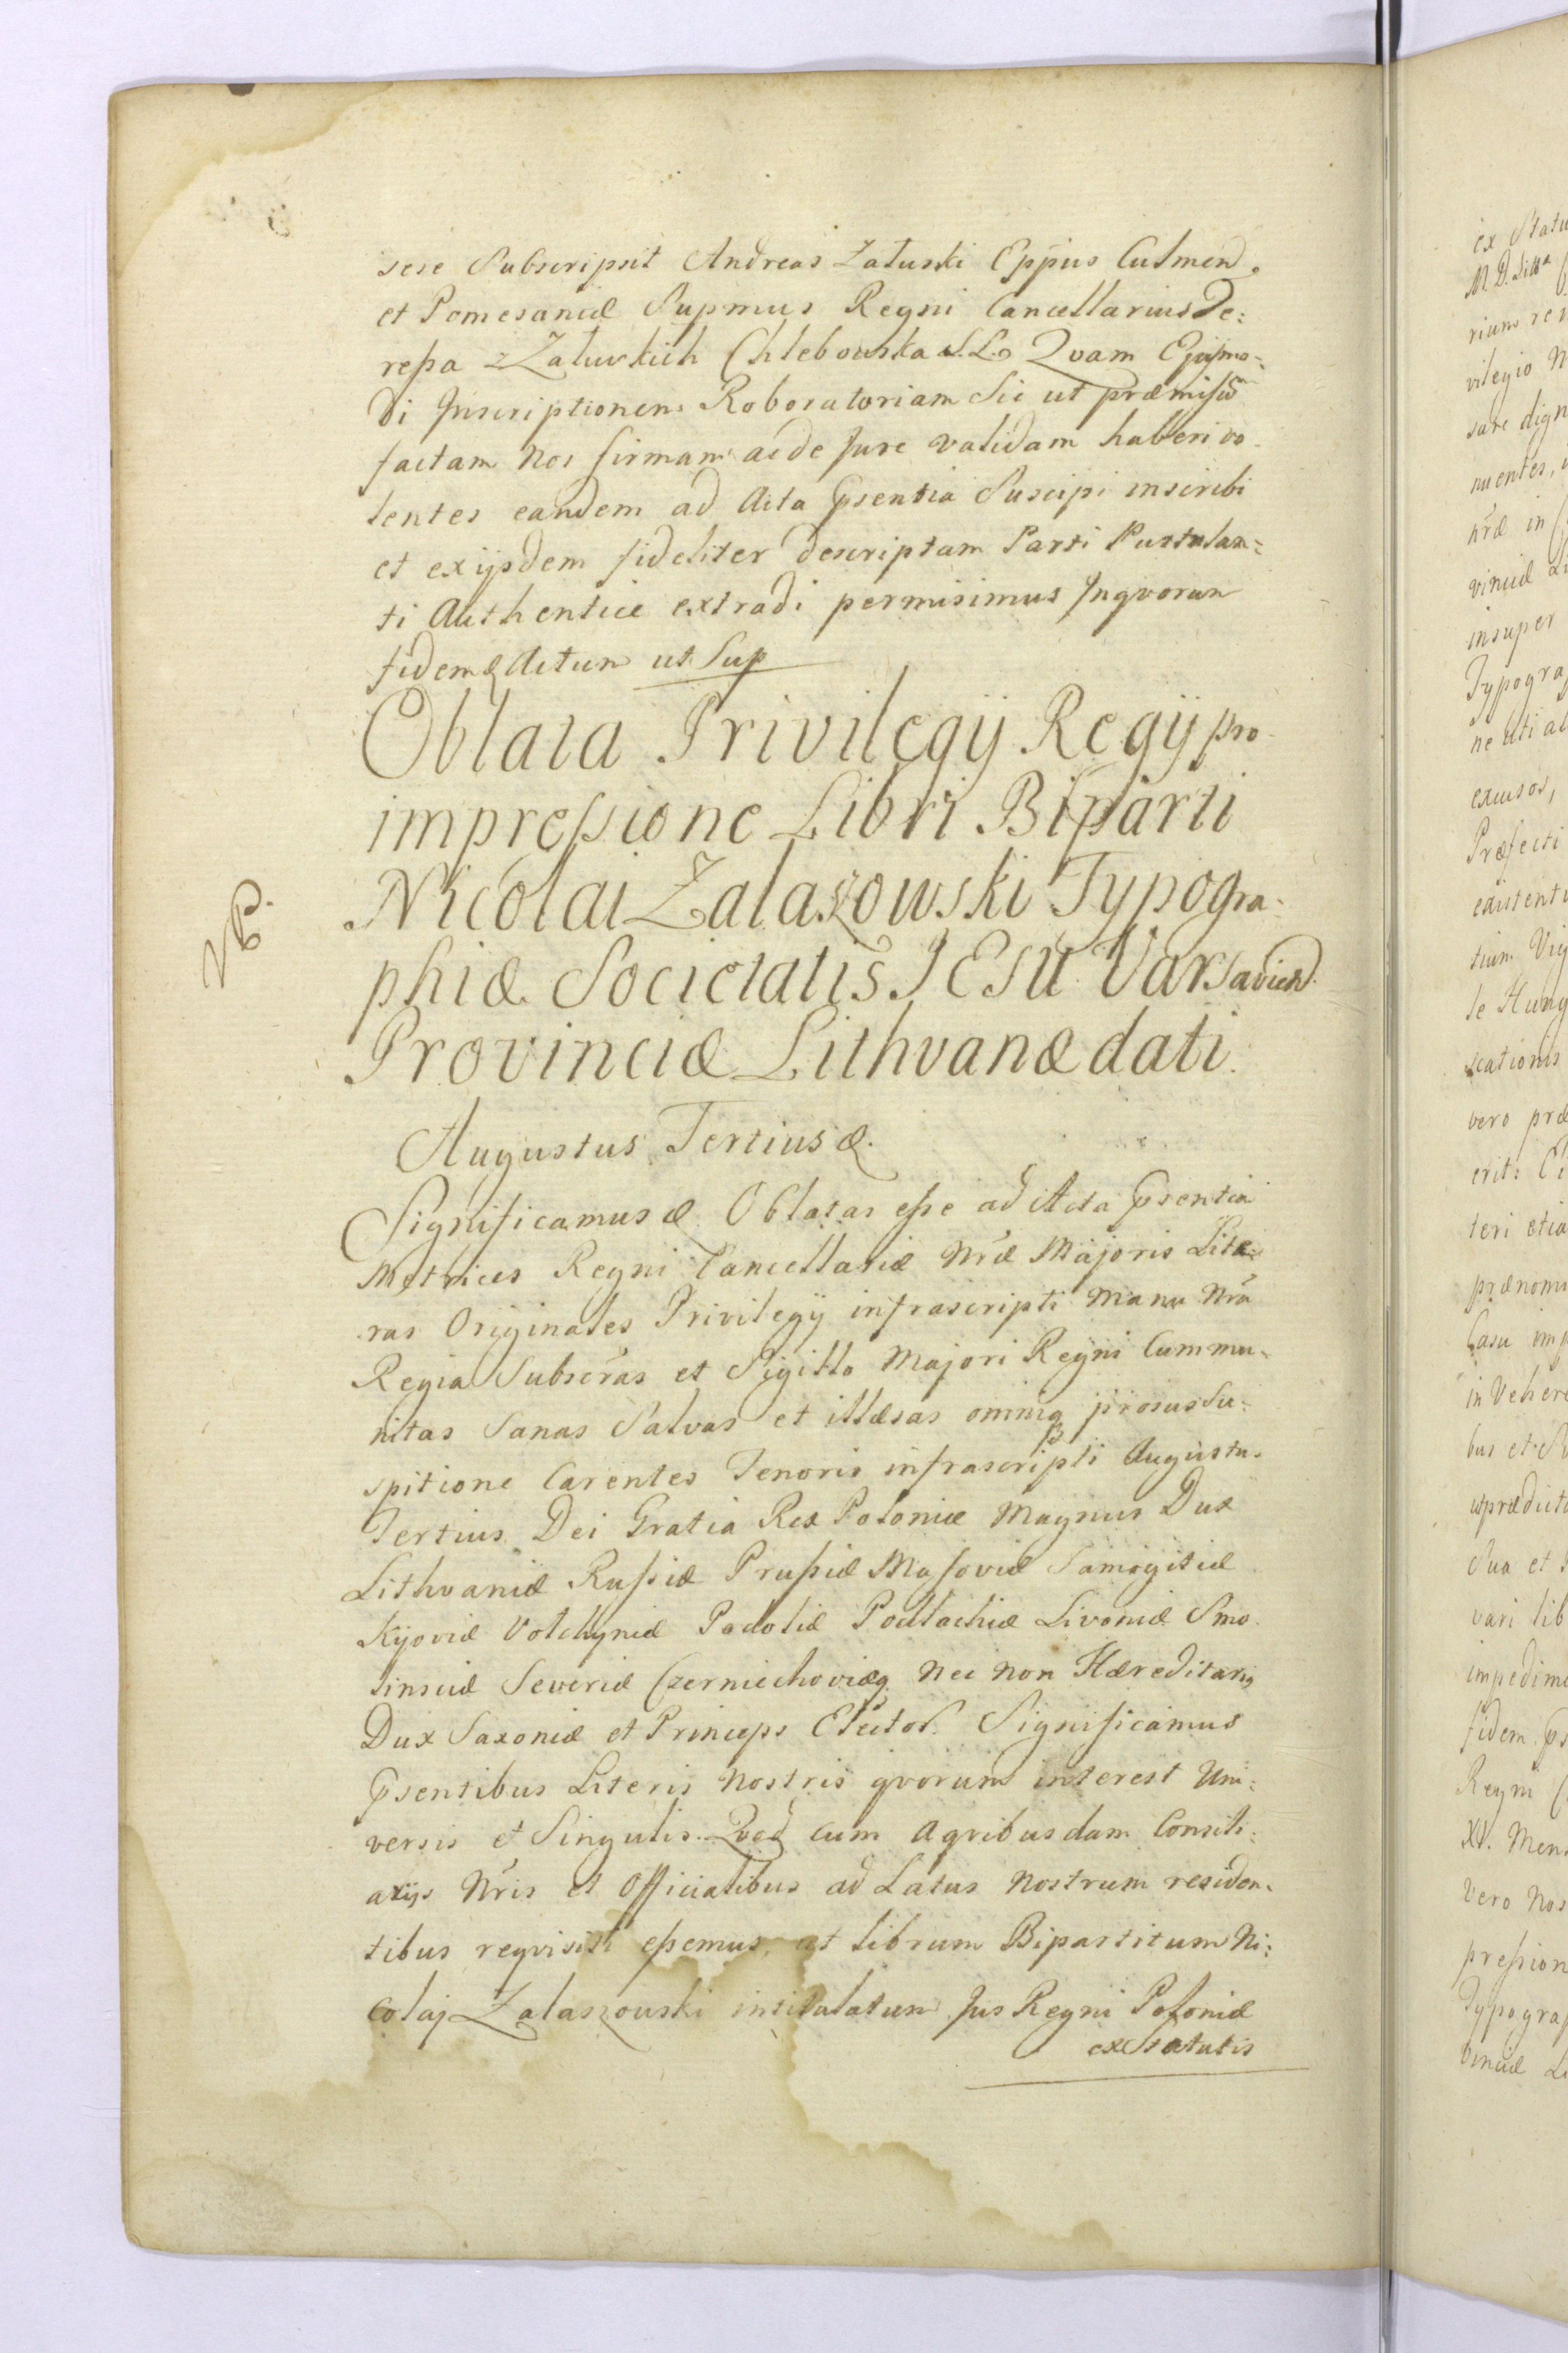 sese Subscripsit Andreas Załuski Eppus Culmen.
et Pomesaniæ Supmus Regni Cancellarius. De=
reſsa z Załuskich Chlebowska L.L. Qvam Ejusmo=
di Inscriptionem Roboratoriam Sic ut præmiſsũ
factam Nos firmam ac de Jure validam haberi vo=
lentes eandem ad Acta Psentia Suscipi inscribi
et ex ijsdem fideliter descriptam Parti Postulan=
ti Authentice extradi permisimus Inqvorum
fidem & Actum ut Sup
Oblata Privilegij Regij pro
impreſsione Libri Biparti
Nicolai Zalaszowski Typogra=
phiæ Societatis JESU Varsavien.
Provinciæ Lithvanæ dati.
NB.
Augustus Tertius &.
Significamus & Oblatas eſse ad Acta Psentia
Metrices Regni Cancellariæ Nræ Majoris Lite=
ras Originales Privilegij infrascripti Manu Nra
Regia Subscras et Sigillo Majori Regni Commu=
nitas Sanas Salvas et illæsas omniq prorsus Su=
spitione Carentes Tenoris infrascripti Augustus
Tertius Dei Gratia Rex Poloniæ Magnus Dux
Lithvaniæ Ruſsiæ Pruſsiæ Masoviæ Samogitiæ
Kijoviæ Volchyniæ Podoliæ Podlachiæ Livoniæ Smo
linsciæ Severiæ Czerniechoviæq Nec non Hæreditarius
Dux Saxoniæ et Princeps Elector. Significamus
Psentibus Literis Nostris qvorum interest Uni=
versis et Singulis. Qvod cum a qvibusdam Consili=
arijs Nris et Officialibus ad Latus Nostrum residen=
tibus reqvisiti eſsemus, ut librum Bipartitum Ni=
colaj Zalaszowski intitulatum Jus Regni Poloniæ
ex Statutis
ex Statu
rium
vilegio
sare dign
nuentes,
nræ in
insuper
Typogra
ne uti
excusos,
Præfecti
le Hung
vero præ
teri etia
Casu
in Vehere
bus et
Sua et
vari lib
impedime
fidem
Regni
XV. Mens
Vero Nos
preſsion
Typograp
vinciæ